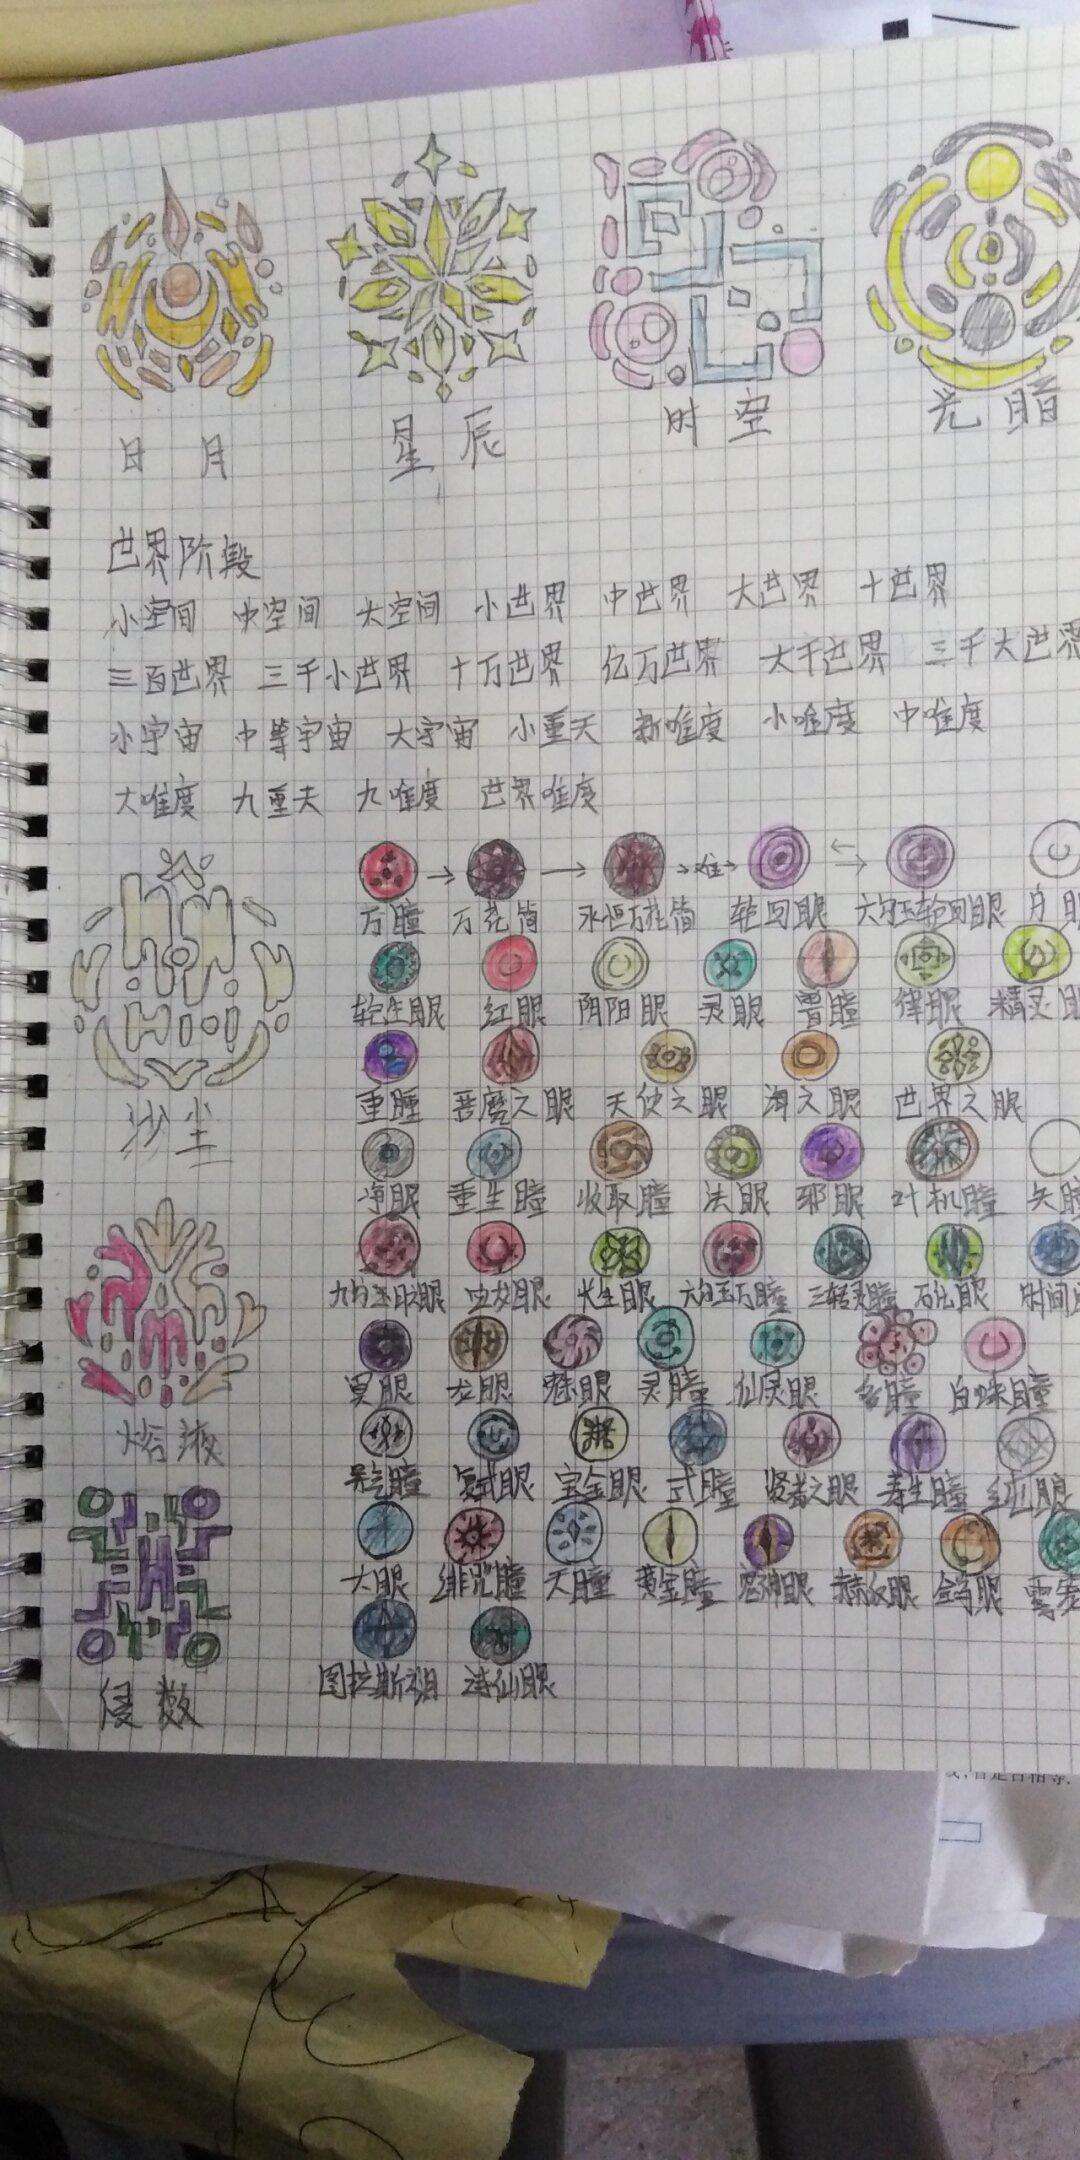 日月 星辰 时空 光暗
世界阶段
小空间 中空间 大空间 小世界 中世界 大世界 十世界
三百世界 三千小世界 十万世界 亿万世界 大千世界 三千大世界
小宇宙 中等宇宙 大宇宙 小重天 新唯度 小唯度 中唯度
大唯度 九重天 九唯度 世界唯度
难
万瞳 万花筒 永恒万花筒 轮回眼 六勾玉轮回眼
转生眼 红眼 阴阳眼 灵眼 兽瞳 精灵眼
重瞳 恶魔之眼 天使之眼 海之眼 世界之眼
沙尘
净眼 重生瞳 收取瞳 法眼 邪眼 叶机瞳
长生眼 六勾玉万瞳 三转灵瞳 石化眼 时间
冥眼 龙眼 魅眼 灵瞳 仙灵眼 多瞳 白味瞳
熔液
复式眼 宝金眼 式瞳 贤者之眼 寿生瞳
大眼 绯咒瞳 天瞳 黄金瞳 宫神眼 赫奴眼 金乌眼
侵数
图拉斯祖 诸仙眼